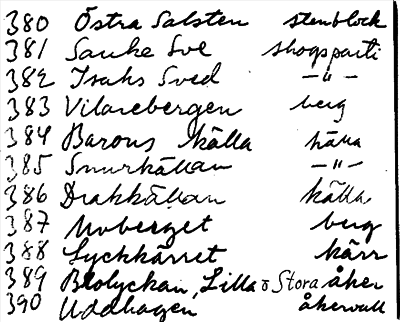 380 Östra Salsten stenblock
381 Sauke Sve skogsparti
382 Isaks Sved — " —
383 Vilarebergen berg
384 Barons källa källa
385 Snurkällan — " —
386 Drakkällan källa
387 Uvberget berg
388 Lyckkärret kärr
389 Blolyckan, Lilla o Stora åker
390 Uddhagen åkervall